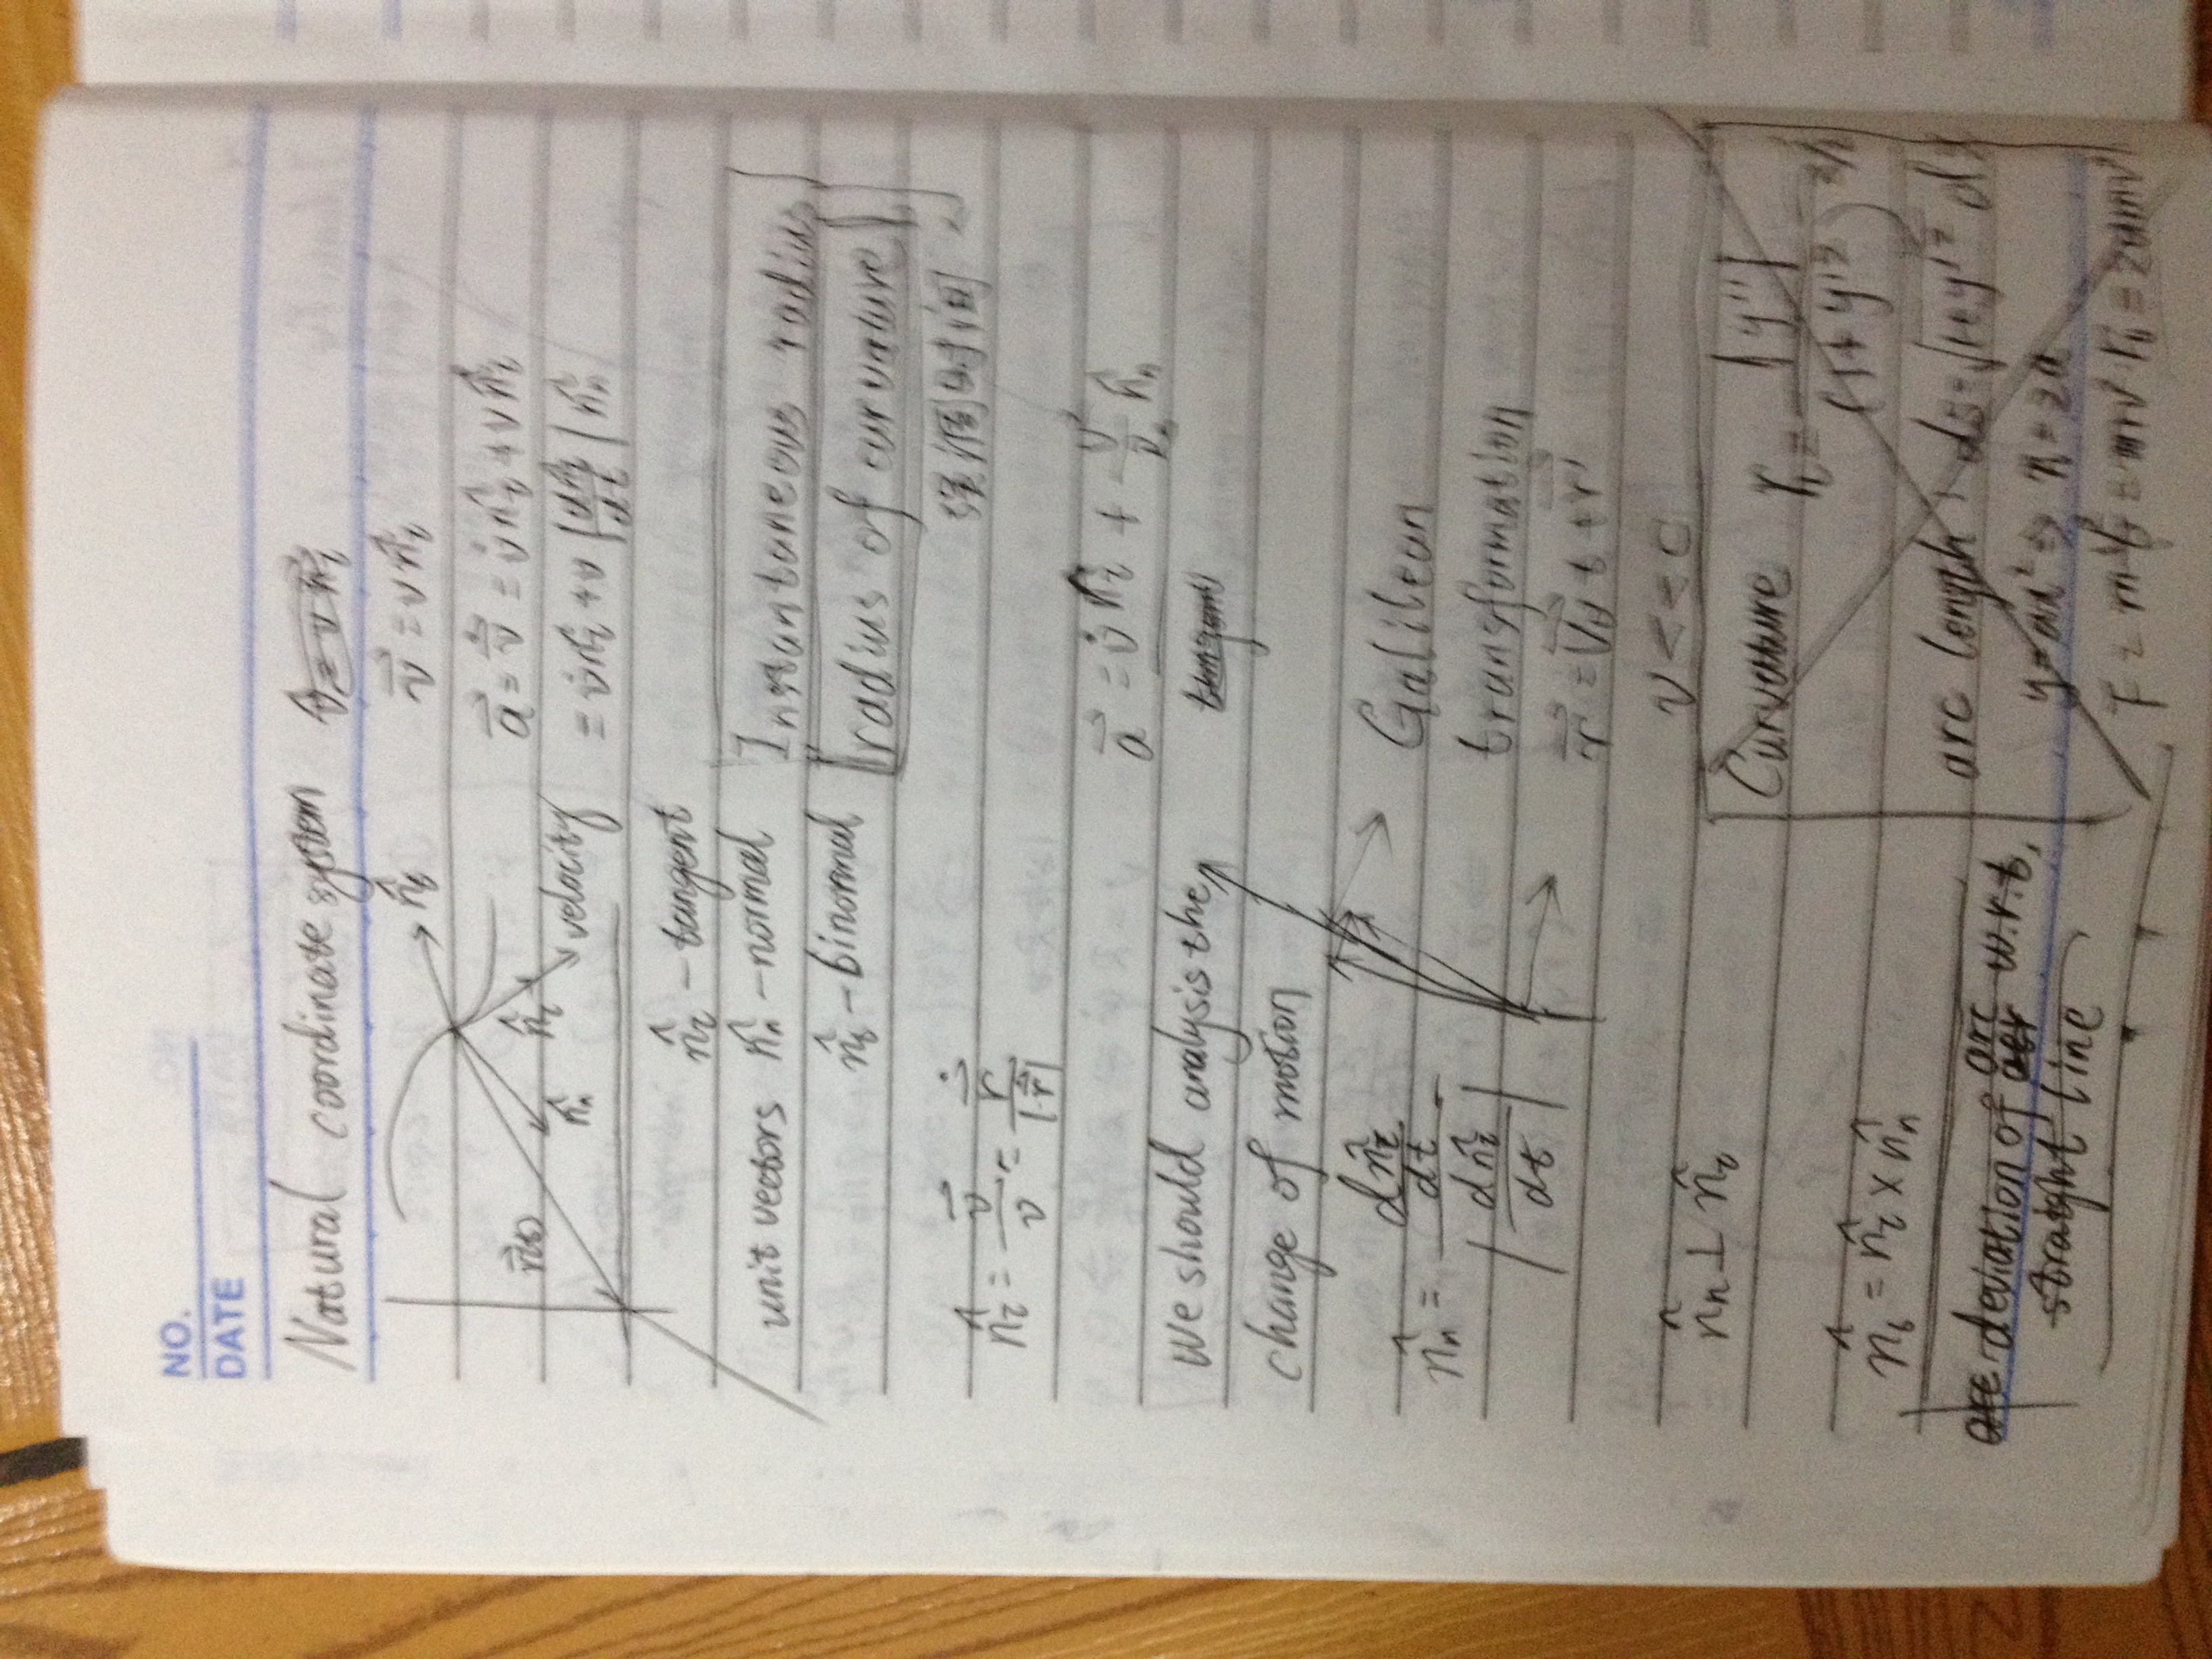 NO.
DATE
Natural coordinate system
n̂_b
r⃗(t)
n̂_τ
n̂_n
velocity
n̂_τ - tangent
unit vectors n̂_n - normal
n̂_b - binormal
n̂_τ = v⃗/v = ṙ⃗/|ṙ⃗|
We should analysis the
change of motion
n̂_n = (dn̂_τ/dt)/|dn̂_τ/dt|
n̂_n ⊥ n̂_τ
n̂_b = n̂_τ × n̂_n
arc deviation of arc w.r.t,
straight line
v⃗ = v n̂_τ
v⃗ = v n̂_τ
a⃗ = v̇⃗ = v̇ n̂_τ + v n̂̇_τ
= v̇ n̂_τ + v |dn̂_τ/dt| n̂_n
Instantaneous radius
radius of curvature
时间
tangent
Galilean
transformation
v << c
Curvature
arc length: ds = √(1+y'² dx
y = ax² ⇒ κ = 2a